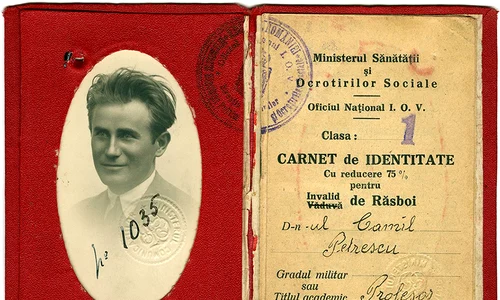 No 1035
Ministerul Sănătății
și
Ocrotirilor Sociale
Oficiul Național I. O. V.
Clasa: 1
CARNET de IDENTITATE
Cu reducere 75%
pentru
Invalid
Văduvă de Răsboi
D-n-ul Camil
Petrescu
Gradul militar
sau
Titlul academic Profesor